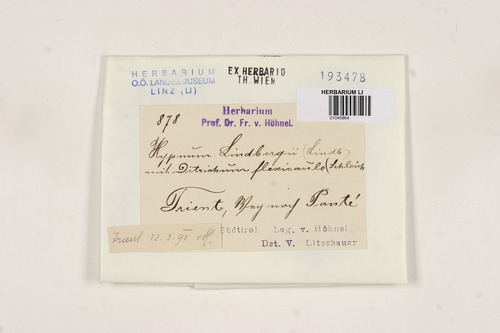 HERBARIUM
O.Ö. LANDESMUSEUM
LINZ (LI)
EX HERBARIO
TH. WIEN
193478
HERBARIUM LI
878
Herbarium
Prof. Dr. Fr. v. Höhnel.
Hypnum Lindbergii (Lindb)
mit Ditrichum flexicaule (Schleich
Trient, Weg nach Ponté
Südtirol Leg. v. Höhnel
Det. V. Litschauer
Trient